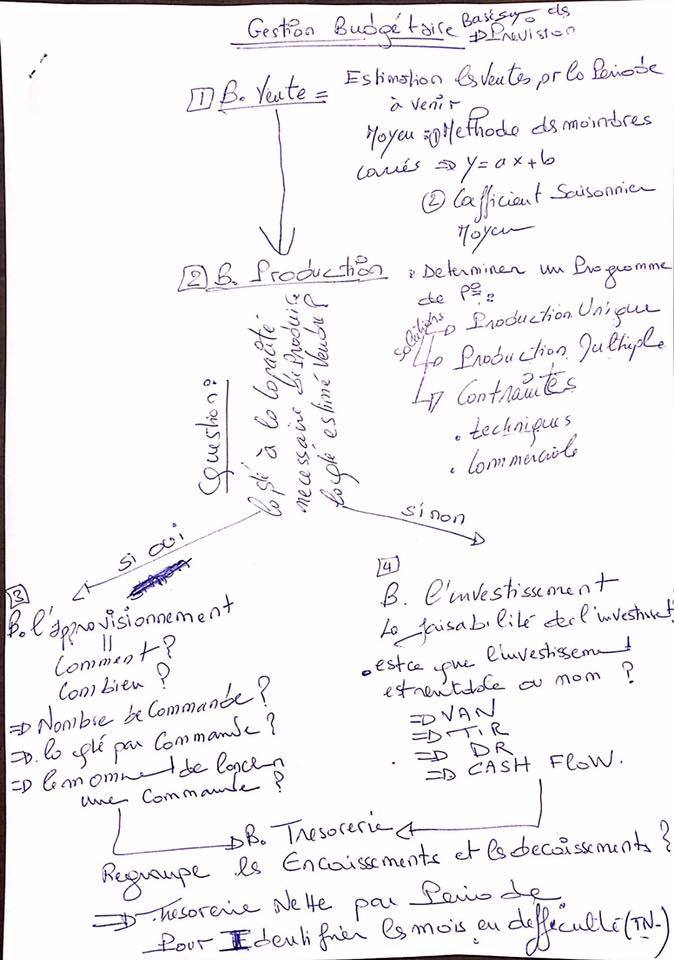 Gestion Budgétaire Basé sur ds
=> Prévision
1 B. Vente = Estimation ls ventes pr la Periode
à venir
Moyen => ① Methode ds moindres
carrés => y = ax + b
② Coefficient Saisonnier
Moyen
2 B. Production : Determiner un Programme
de P° :
solutions
Production Unique
Production Multiple
Contraintes
. techniques
. Commerciale
Question:
la sté à la capacité
necessaire de Produire
la qté estimé Vendre ?
si oui
si non
3
B. l'approvisionnement
Comment ?
Combien ?
=> Nombre de Commande ?
=> la qté par Commande ?
=> le moment de lancer
une Commande ?
4
B. l'investissement
La faisabilité de l'investisst
. est ce que l'investissement
est rentable ou nom ?
=> VAN
=> TiR
=> DR
=> CASH FLOW.
B. Tresorerie
Regroupe ls Encaissements et ls decaissements ?
=> Tresorerie Nette par Periode
Pour Identifier ls mois en defficulté (TN-)